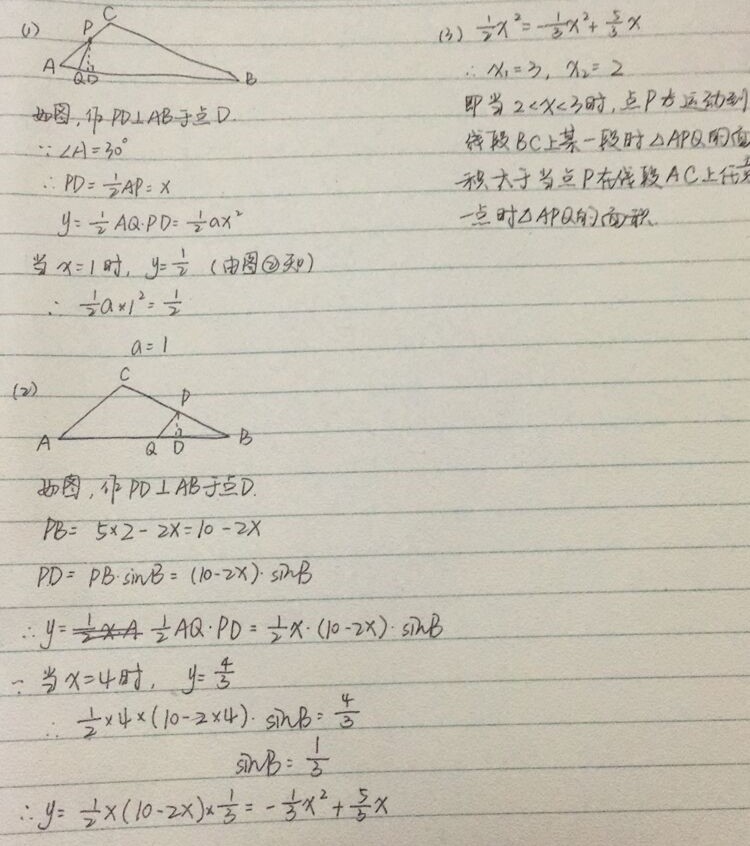 (1)
P C
A Q D B
如图,作PD⊥AB于点D.
∵∠A=30°
∴PD=½AP=x
y=½AQ·PD=½ax²
当x=1时, y=½ (由图②知)
∴ ½a×1²=½
a=1
(2)
C
P
A Q D B
如图,作PD⊥AB于点D.
PB= 5×2-2x=10-2x
PD= PB·sinB=(10-2x)·sinB
∴y= ½AQ·PD=½x·(10-2x)·sinB
∵当x=4时, y=4/3
∴ ½×4×(10-2×4)·sinB=4/3
sinB=1/3
∴y= ½x(10-2x)×1/3=-1/3x²+5/3x
(3) ½x²=-1/3x²+5/3x
∴x₁=3, x₂=2
即当2<x<3时,点P 运动到
线段BC上某一段时△APQ的面
积大于当点P在线段AC上任意
一点时△APQ的面积.